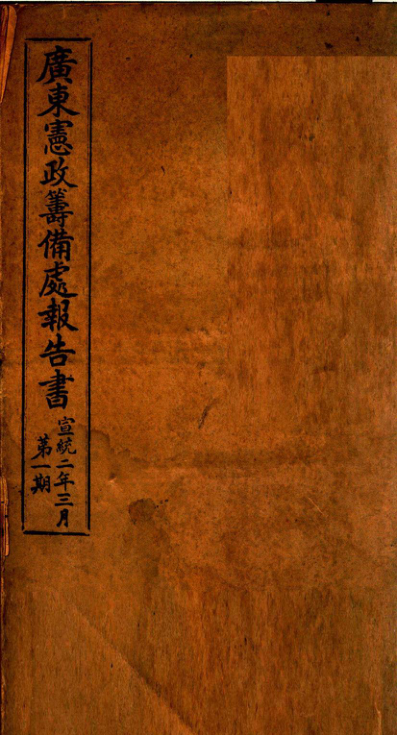 廣東憲政籌備處報告書
宣統二年三月
第一期